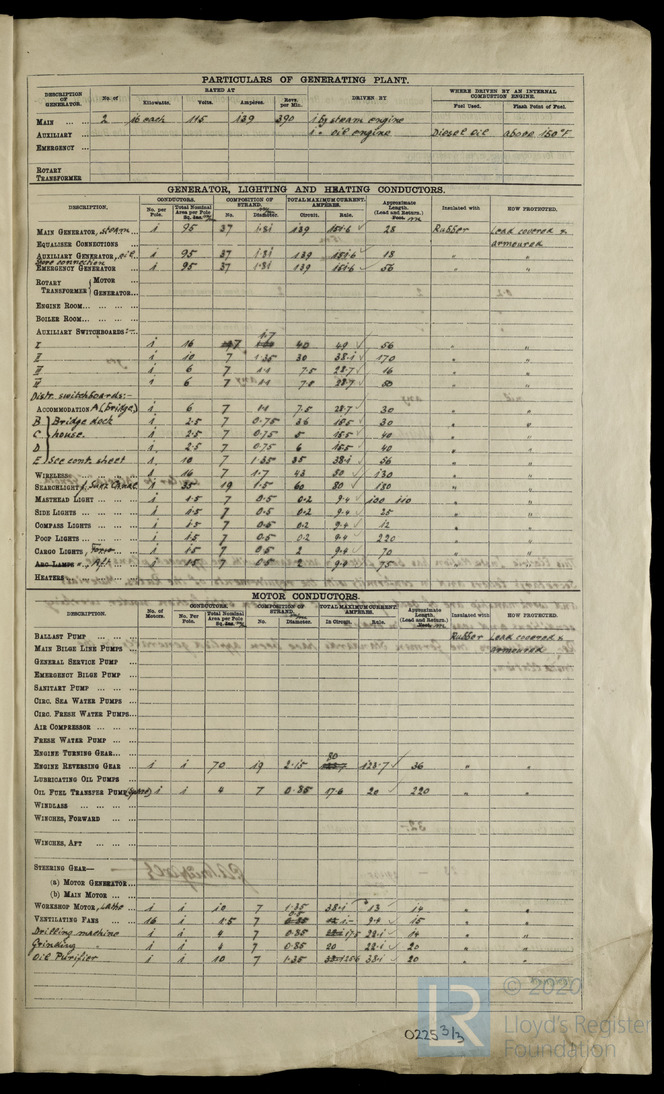 PARTICULARS OF GENERATING PLANT.
DESCRIPTION OF GENERATOR. No. of RATED AT DRIVEN BY WHERE DRIVEN BY AN INTERNAL COMBUSTION ENGINE.
Kilowatts. Volts. Ampères. Revs. per Min. Fuel Used. Flash Point of Fuel.
MAIN 2 16 each 115 139 390 1 by steam engine
AUXILIARY 1 " oil engine Diesel oil above 150°F
EMERGENCY
ROTARY TRANSFORMER
GENERATOR, LIGHTING AND HEATING CONDUCTORS.
DESCRIPTION. CONDUCTORS. COMPOSITION OF STRAND. TOTAL MAXIMUM CURRENT. AMPERES. Approximate Length. (Lead and Return.) Insulated with HOW PROTECTED.
No. per Pole. Total Nominal Area per Pole No. Diameter. Circuit. Rule.
MAIN GENERATOR, steam 1 95 37 1.81 139 151.6 28 Rubber Lead covered &
EQUALISER CONNECTIONS armoured
AUXILIARY GENERATOR, oil 1 95 37 1.81 139 151.6 18 " "
Shore connection
EMERGENCY GENERATOR 1 95 37 1.81 139 151.6 56 " "
ROTARY TRANSFORMER MOTOR
GENERATOR
ENGINE ROOM
BOILER ROOM
AUXILIARY SWITCHBOARDS:-
I 1 16 7 1.7 40 49 56 " "
1 10 7 1.35 30 38.1 170 " "
1 6 7 1.1 7.5 28.7 16 " "
1 6 7 1.1 7.0 28.7 50 " "
Distr. switchboards:-
ACCOMMODATION A (Bridge) 1 6 7 1.1 7.5 28.7 30 " "
B Bridge deck 1 2.5 7 0.75 36 15.5 30 " "
C house. 1 2.5 7 0.75 5 15.5 40 " "
D 1 2.5 7 0.75 6 15.5 40 " "
E See cont. sheet 1 10 7 1.35 35 38.1 56 " "
WIRELESS 1 16 7 1.7 43 50 130 " "
SEARCHLIGHT, Suez Canal 1 35 19 1.5 60 80 180 " "
MASTHEAD LIGHT 1 1.5 7 0.5 0.2 9.4 100 110 " "
SIDE LIGHTS 1 1.5 7 0.5 0.2 9.4 25 " "
COMPASS LIGHTS 1 1.5 7 0.5 0.2 9.4 12 " "
POOP LIGHTS 1 1.5 7 0.5 0.2 9.4 220 " "
CARGO LIGHTS, Fore 1 1.5 7 0.5 2 9.4 70 " "
ARC LAMPS ", Aft 1 1.5 7 0.5 2 9.4 75 " "
HEATERS
MOTOR CONDUCTORS.
DESCRIPTION. No. of Motors. CONDUCTORS. COMPOSITION OF STRAND. TOTAL MAXIMUM CURRENT. AMPERES. Approximate Length. (Lead and Return.) Insulated with HOW PROTECTED.
No. Per Pole. Total Nominal Area per Pole No. Diameter. In Circuit. Rule.
BALLAST PUMP Rubber Lead covered &
MAIN BILGE LINE PUMPS armoured
GENERAL SERVICE PUMP
EMERGENCY BILGE PUMP
SANITARY PUMP
CIRC. SEA WATER PUMPS
CIRC. FRESH WATER PUMPS
AIR COMPRESSOR
FRESH WATER PUMP
ENGINE TURNING GEAR
ENGINE REVERSING GEAR 1 1 70 19 2.15 80 123.7 36 " "
LUBRICATING OIL PUMPS
OIL FUEL TRANSFER PUMP 1 1 4 7 0.85 17.6 20 220 " "
WINDLASS
WINCHES, FORWARD
WINCHES, AFT
STEERING GEAR—
(a) MOTOR GENERATOR
(b) MAIN MOTOR
WORKSHOP MOTOR, Lathe 1 1 10 7 1.35 38.1 13 14 " "
VENTILATING FANS 16 1 1.5 7 0.5 1.- 9.4 15 " "
Drilling machine 1 1 4 7 0.85 17.5 22.1 14 " "
Grinking " 1 1 4 7 0.85 20 22.1 20 " "
Oil Purifier 1 1 10 7 1.35 38.1 20 " "
0225 3/3
© 2020
Lloyd's Register
Foundation
LR